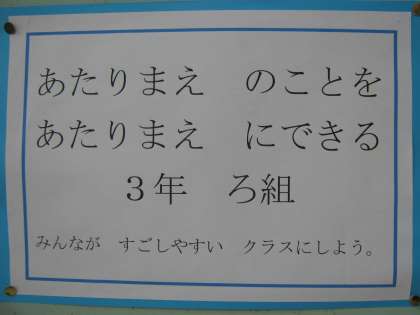 あたりまえ　のことを
あたりまえ　にできる
３年　ろ組
みんなが　すごしやすい　クラスにしよう。